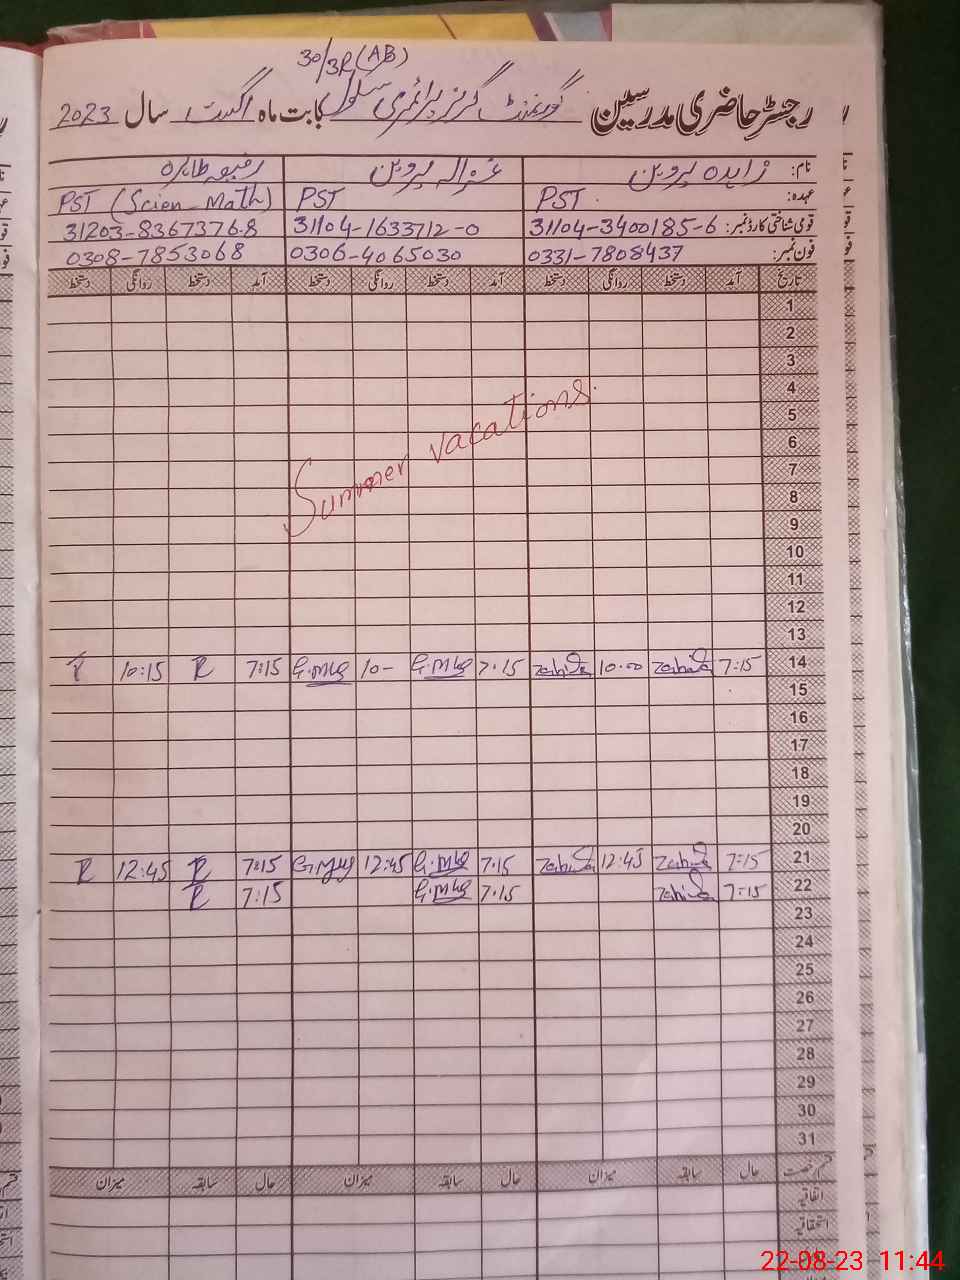 30/3R(AB)
رجسٹر حاضری مدرسین گورنمنٹ گرلز پرائمری سکول بابت ماہ اگست سال 2023
نام: زاہدہ پروین غزالہ پروین رفیعہ طاہرہ
عہدہ: PST PST PST (Scien_Math)
قومی شناختی کارڈ نمبر: 31104-3400185-6 31104-1633712-0 31203-8367376-8
فون نمبر: 0331-7808437 0306-4065030 0308-7853068
تاریخ آمد دستخط روانگی دستخط آمد دستخط روانگی دستخط آمد دستخط روانگی دستخط
1
2
3
4
5
6
7
8
9
10
11
12
13
Summer vacations.
14 7:15 Zahida 10.00 Zahida 7.15 10- 7:15 R 10:15 R
15
16
17
18
19
20
21 7:15 Zahida 12:45 Zahida 7.15 12:45 7:15 R 12:45 R
22 7:15 Zahida 7.15 7:15 R
23
24
25
26
27
28
29
30
31
قسم رخصت حال سابقہ میزان حال سابقہ میزان حال سابقہ میزان
اتفاقیہ
استحقاقیہ
22-08-23 11:44